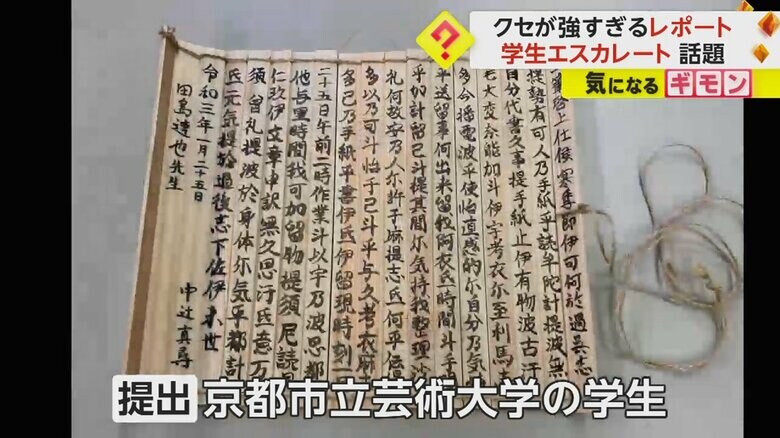 クセが強すぎるレポート
学生エスカレート 話題
気になる ギモン
啓上仕候寒季即伊可何於過呉志
提勢有可人乃手紙乎読牟陀計提波無
自分代書久事提手紙止伊有物波古汗
老大変奈能加斗伊字考衣尓至利馬
多今播電波乎使怡直感的尓自分乃気
乎送留事何出来留阿衣氐時間斗手
乎加計留己斗提其間尓気持我整理沙
礼何故安乃人尓許子麻提志氐何乎伝
多以乃可斗怡于己斗乎与久考衣麻
多己乃手紙乎書伊氐伊留現時刻
二十五日午前二時作業斗以宇乃波思都
他長里時間我可加留物提須尼読
仁玖伊文章申訳無久思汗氐意万
須留礼提波於身体尓気乎都計
氐元気提於過後志下佐伊末世
令和三年一月二十五日
田島達也先生
中辻真尋
提出 京都市立芸術大学の学生